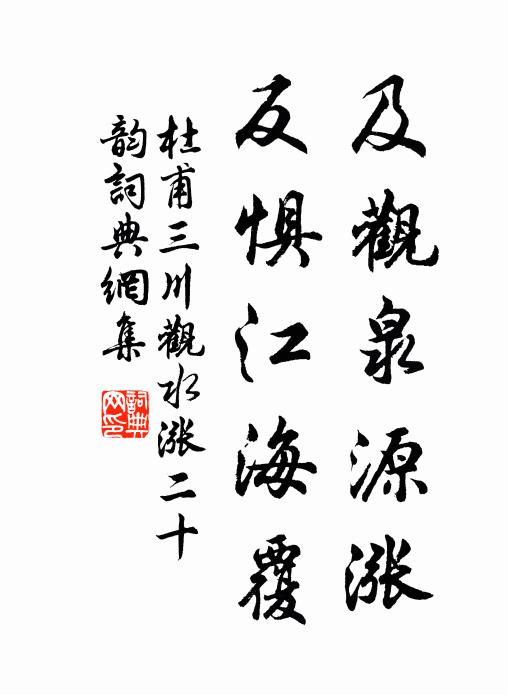 及觀泉源漲
反惧江海覆
杜甫三川觀水漲二十
韵詞典網集
詞典网印